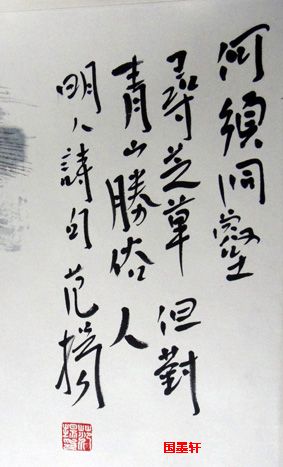 何須洞壑
尋芝草但對
青山勝俗人
明人詩句范揚
国墨轩